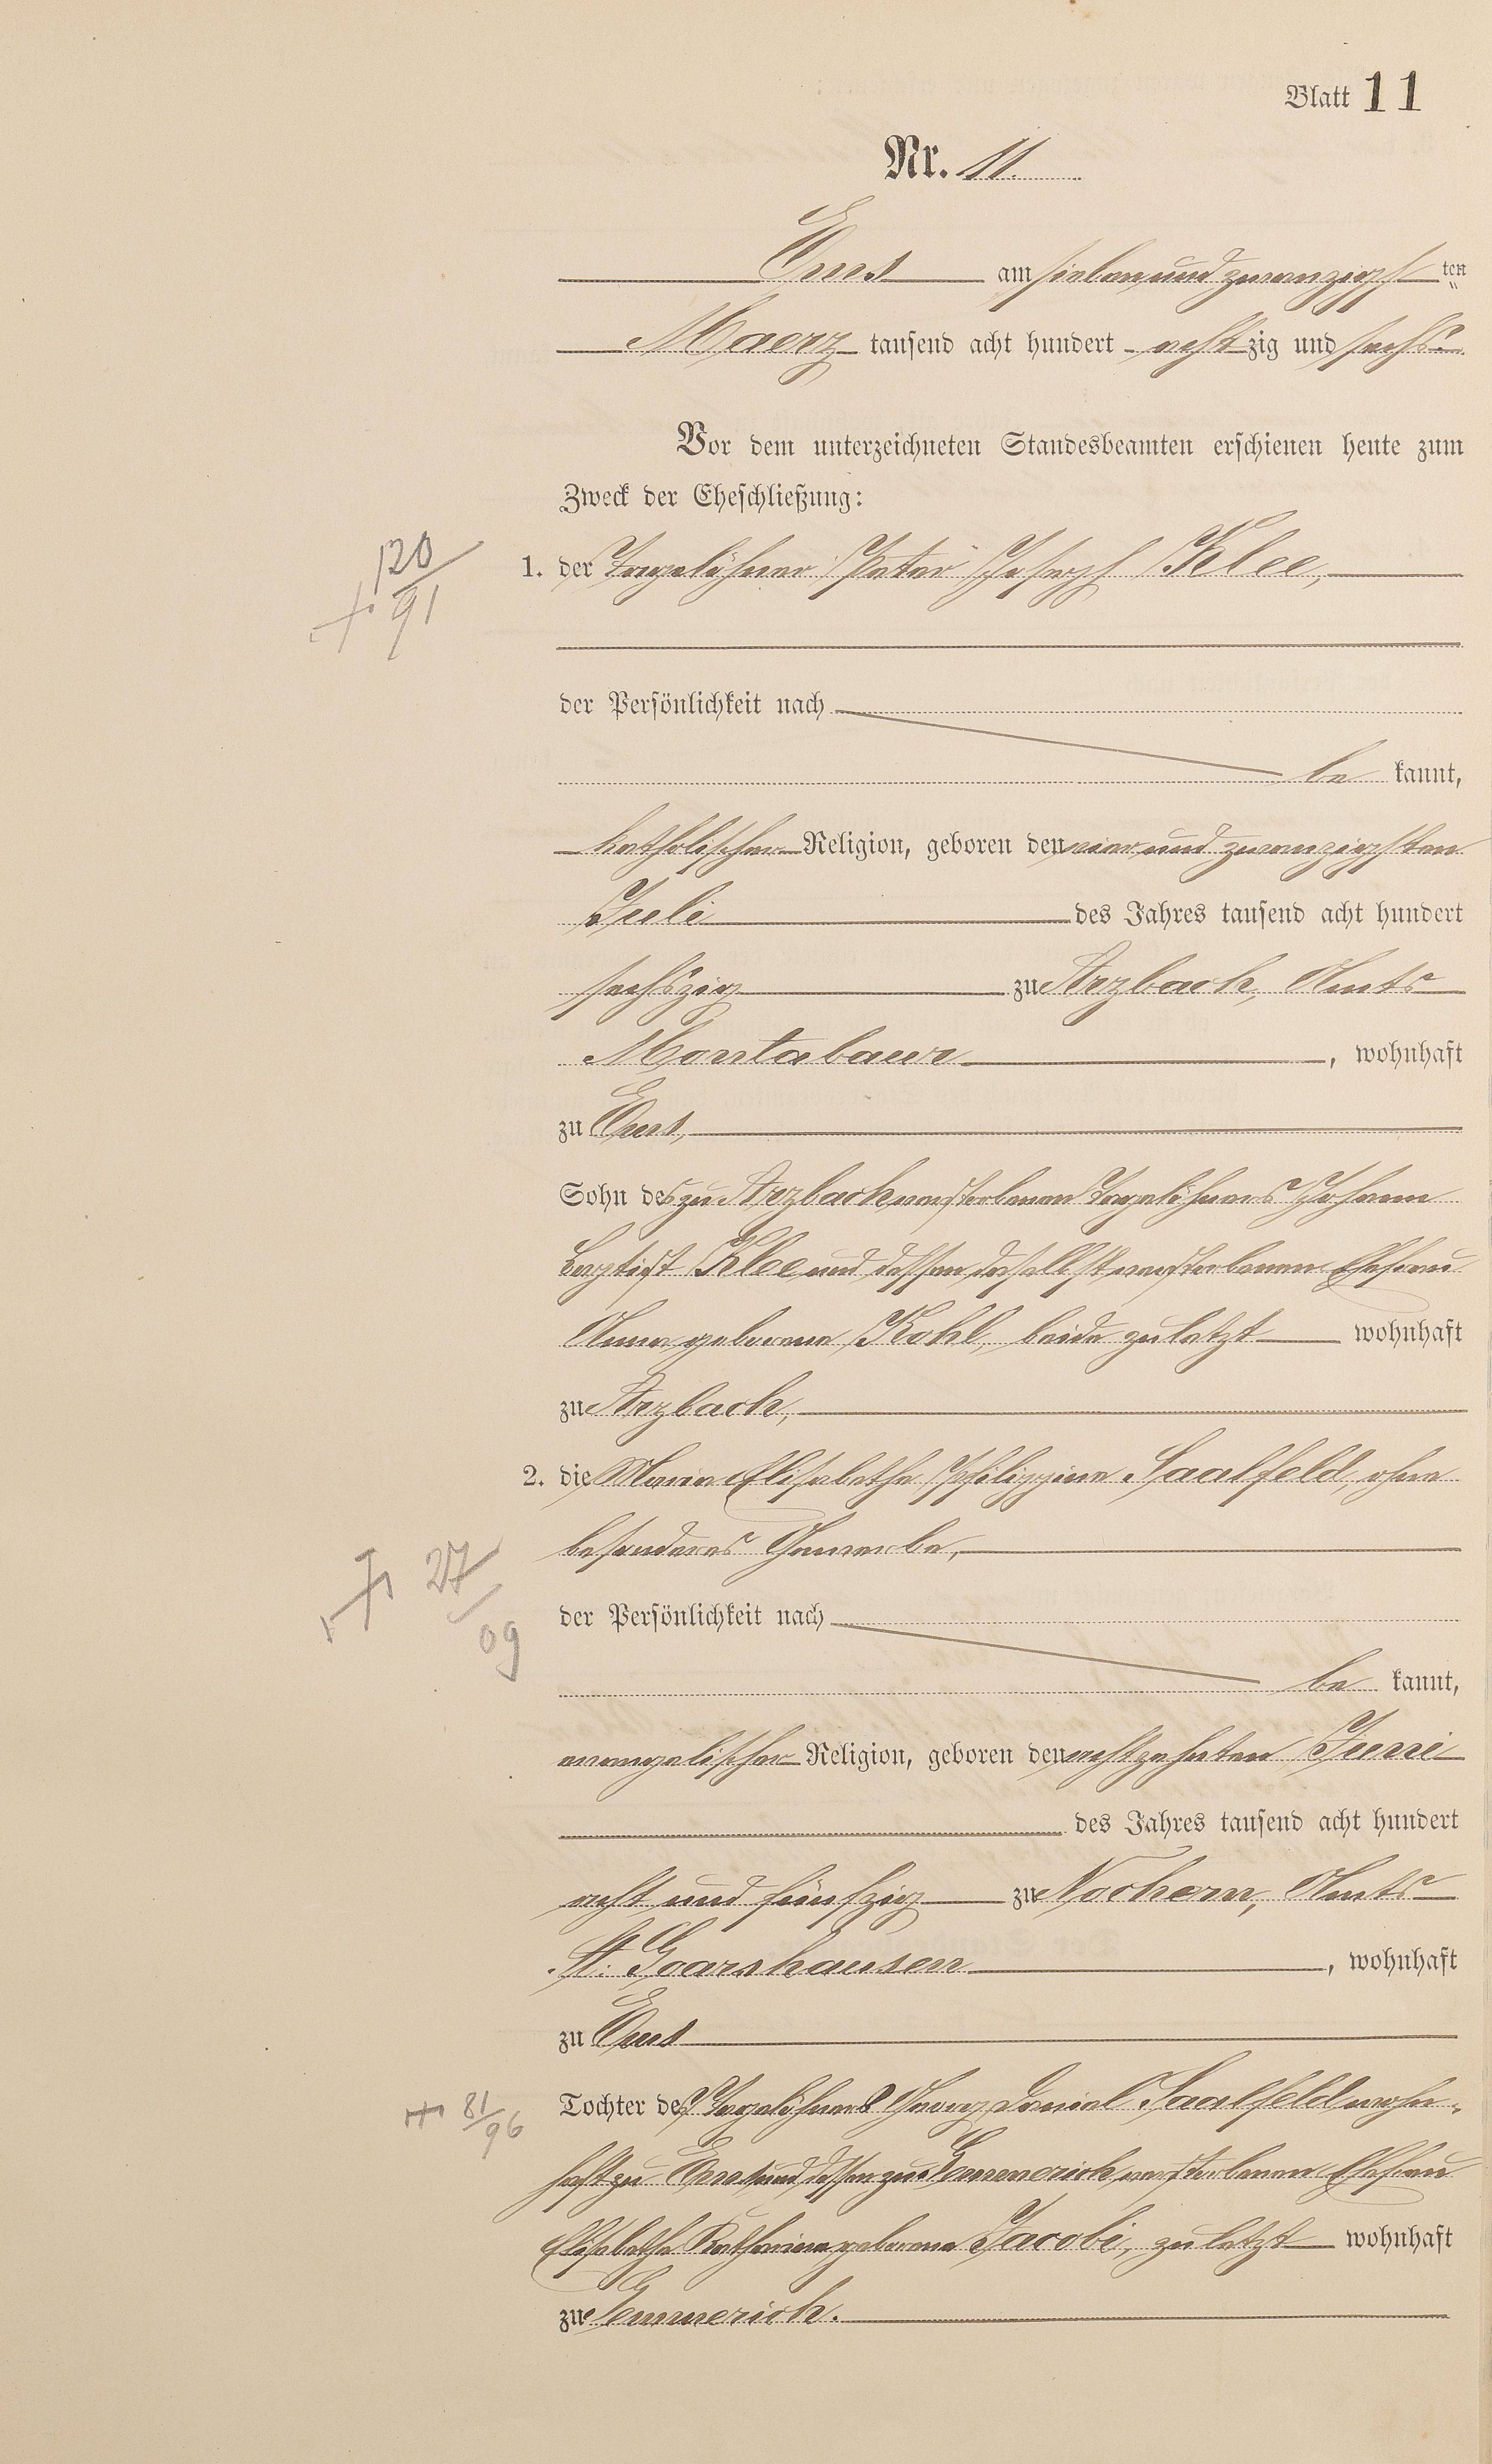 Blatt 11
Nr. 11.
Ems am sieben und zwanzigst ten
Maerz tausend acht hundert acht zig und sechs.
Vor dem unterzeichneten Standesbeamten erschienen heute zum
Zweck der Eheschließung:
1. der Tagelöhner Peter Joseph Klee,
120
+ 91
der Persönlichkeit nach
be kannt,
katholischer Religion, geboren den vier und zwanzigsten
Juli des Jahres tausend acht hundert
sechszig zu Arzbach, Amts
Montabaur, wohnhaft
zu Ems,
Sohn des zu Arzbach verstorbenen Tagelöhners Johann
Baptist Klee und dessen daselbst verstorbenen Ehefrau
Anna geborene Kohl, beide zuletzt wohnhaft
zu Arzbach,
2. die Maria Elisabetha Philippine Saalfeld, ohne
besonderes Gewerbe,
+ 27
09
der Persönlichkeit nach
be kannt,
evangelischer Religion, geboren den achtzehnten Juni
des Jahres tausend acht hundert
acht und fünfzig zu Nochern, Amts
St. Goarshausen, wohnhaft
zu Ems
Tochter des Tagelöhners Georg Daniel Saalfeld wohn-
81
96
haft zu Ems und dessen zu Gemmerich verstorbenen Ehefrau
Elisabetha Katharina geborene Jacobi, zuletzt wohnhaft
zu Gemmerich.